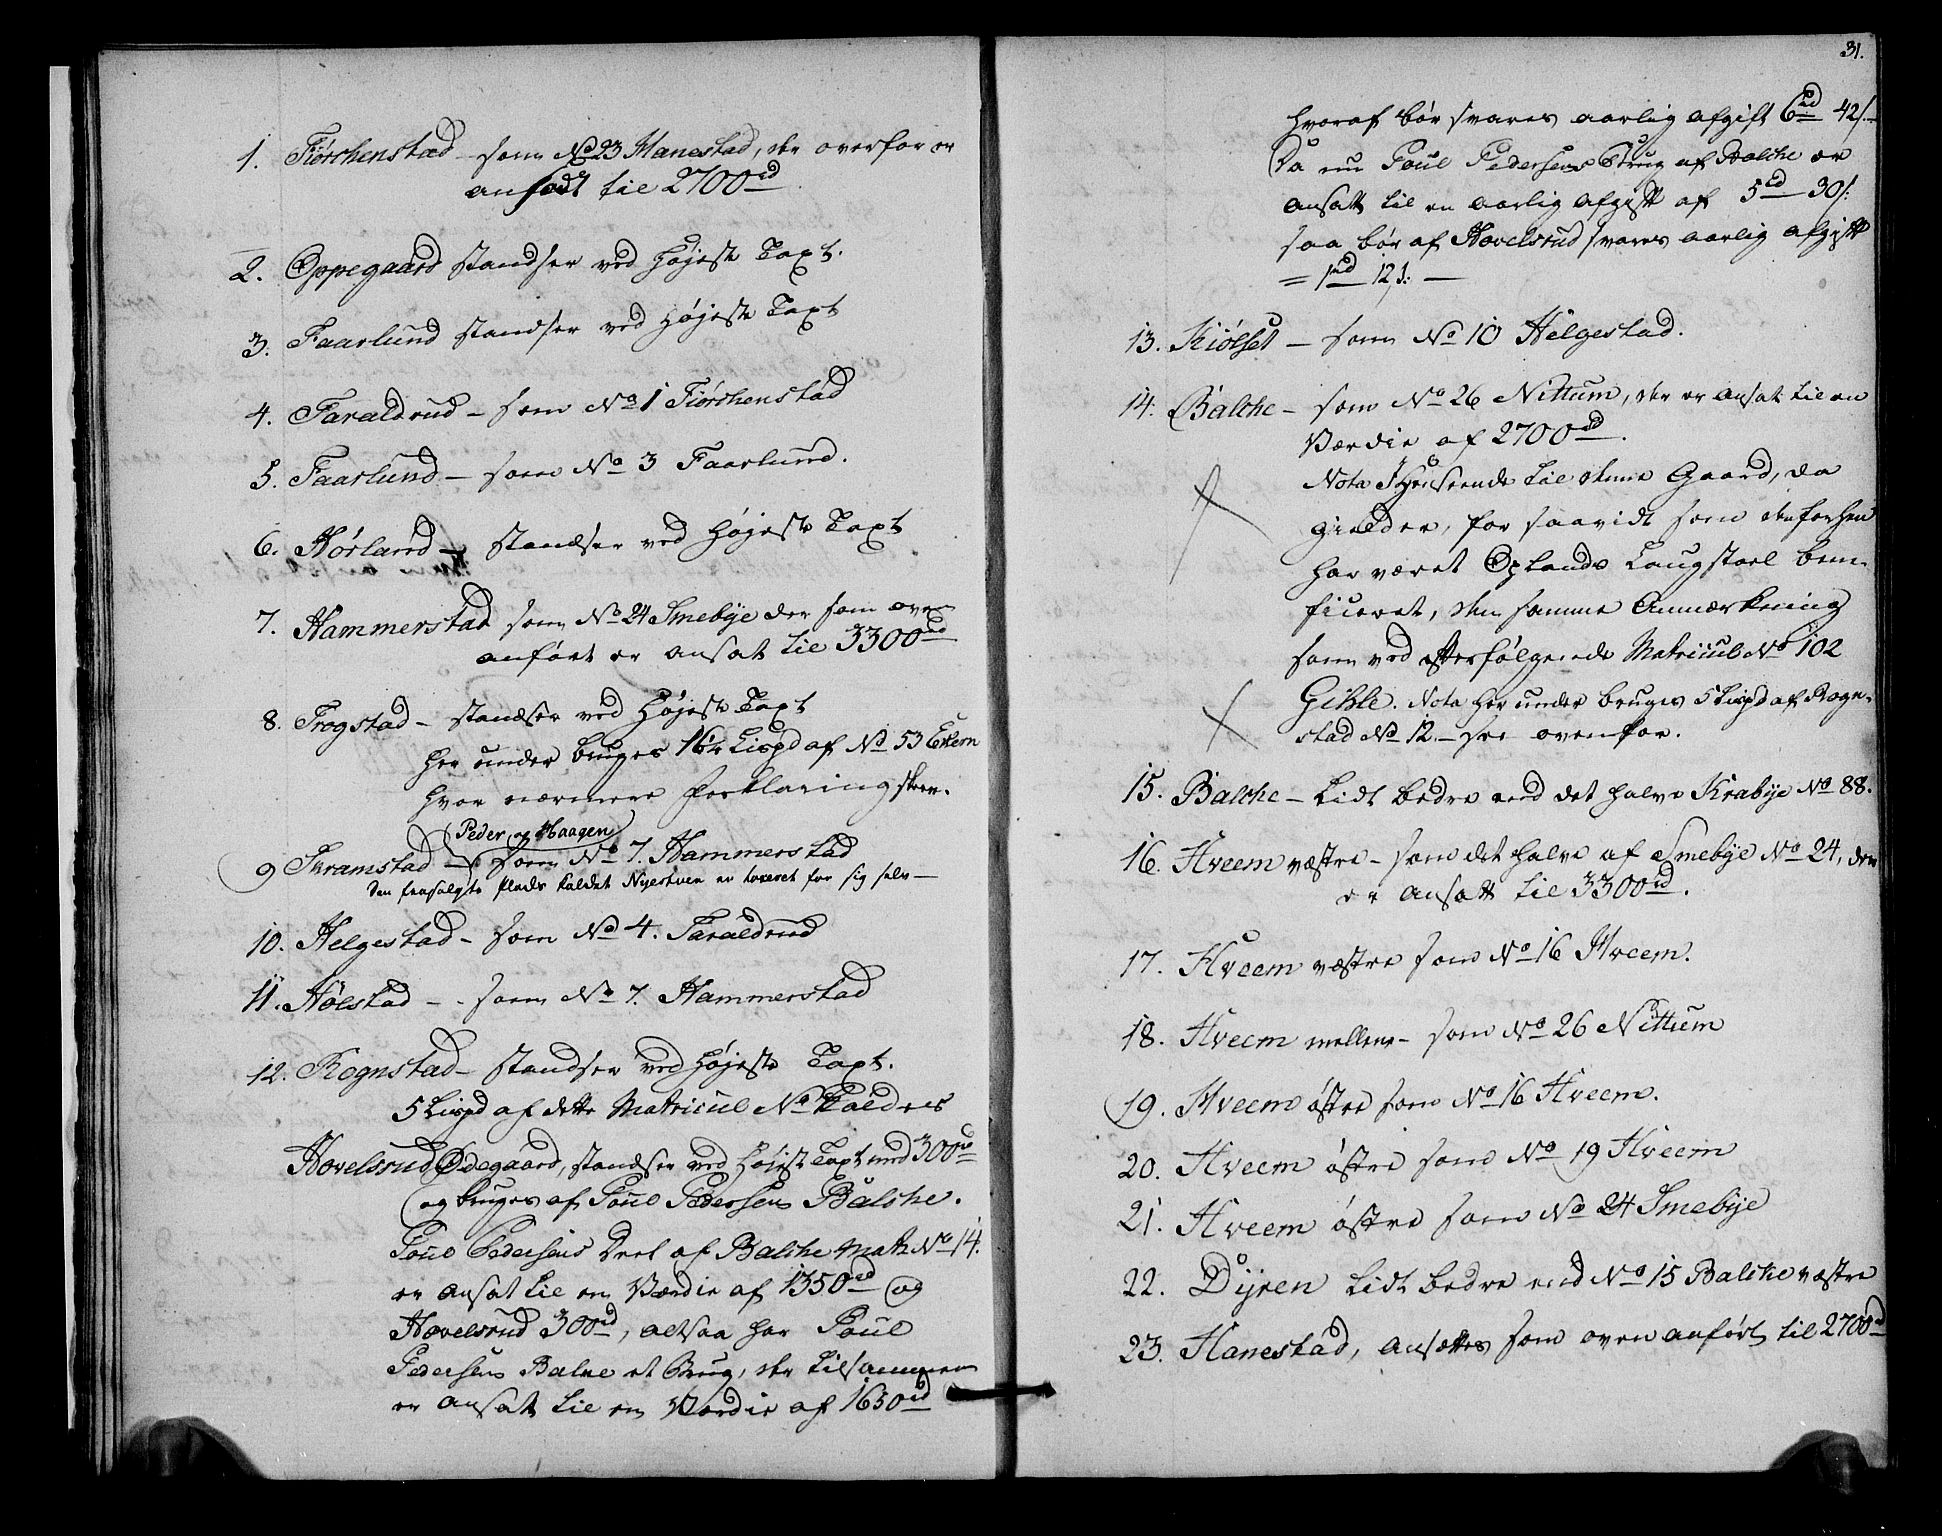 1. Tiørshenstad – som No 23 Hanestad, der overfor er
ansadt til 2700rd
2. Oppegaard standser ved højeste Taxt.
3. Faarlund standser ved højeste Taxt
4. Taraldrud – som No 1 Tiørshenstad
5. Faarlund – som No 3 Faarlund.
6. Hørland – standser ved højeste Taxt
7. Hammerstad som No 24 Smebÿe der som oven
anført er ansat til 3300rd
8. Frogstad – standser ved højeste Taxt
her under bruges 16 Lispd af No 53 Ekern
hvor nærmere forklaring skeer.
Peder og Haagen
9 Skramstad – som No 7. Hammerstad
Den frasolgte Plads kaldet Nyestuen er taxeret for sig selv –
10. Helgestad – som No 4. Taraldrud
11. Hølstad – som No 7. Hammerstad
12. Rognstad – standser ved højeste Taxt.
5 Lispd af dette Matricul No kaldes
Hovelsrud Ødegaard, standser ved højeste Taxt med 300rd
og bruges af Poul Pedersens Balche.
Poul Pedersens Deel af Balche Matr No 14.
er ansat til en Værdie af 1350rd og
Hovelsrud 300rd, altsaa har Poul
Pedersens Balke et Brug, der tilsammen
er ansatt til en Værdie af 1650rd
31.
hvoraf bør svares aarlig afgift 6rd 42/.
Da nu Poul Pedersens Brug af Balche er
ansatt til en aarlig afgift af 5rd 30/:
saa bør af Hovelsrud svares aarlig afgift
= 1rd 12 s: –
13. Kiølset – som No 10 Helgestad.
14. Balche – som No 26 Nittum, der er ansat til en
Værdie af 2700rd.
Nota I Henseende til denne Gaard, da
gielder, for saavidt som den forhen
har været Oplands Laugstoel bene-
ficeret, den samme Anmærkning
som ved efterfølgende Matricul No 102
Gihle. Nota her under bruges 5 Lispd af Rogn-
stad No 12 – see ovenfor.
15. Balche – lidt bedre end det halve Krabÿe No 88.
16. Hveem væstre – som det halve af Smebÿe No 24, der
er ansatt til 3300rd.
17. Hveem væstre som No 16 Hveem.
18. Hveem mellem – som No 26 Nittum
19. Hveem østre som No 16 Hveem.
20. Hveem østre som No 19 Hveem
21. Hveem østre som No 24 Smebÿe
22. Dÿren lidt bedre end No 15 Balche væstre
23. Hanestad, ansættes som oven anført til 2700rd